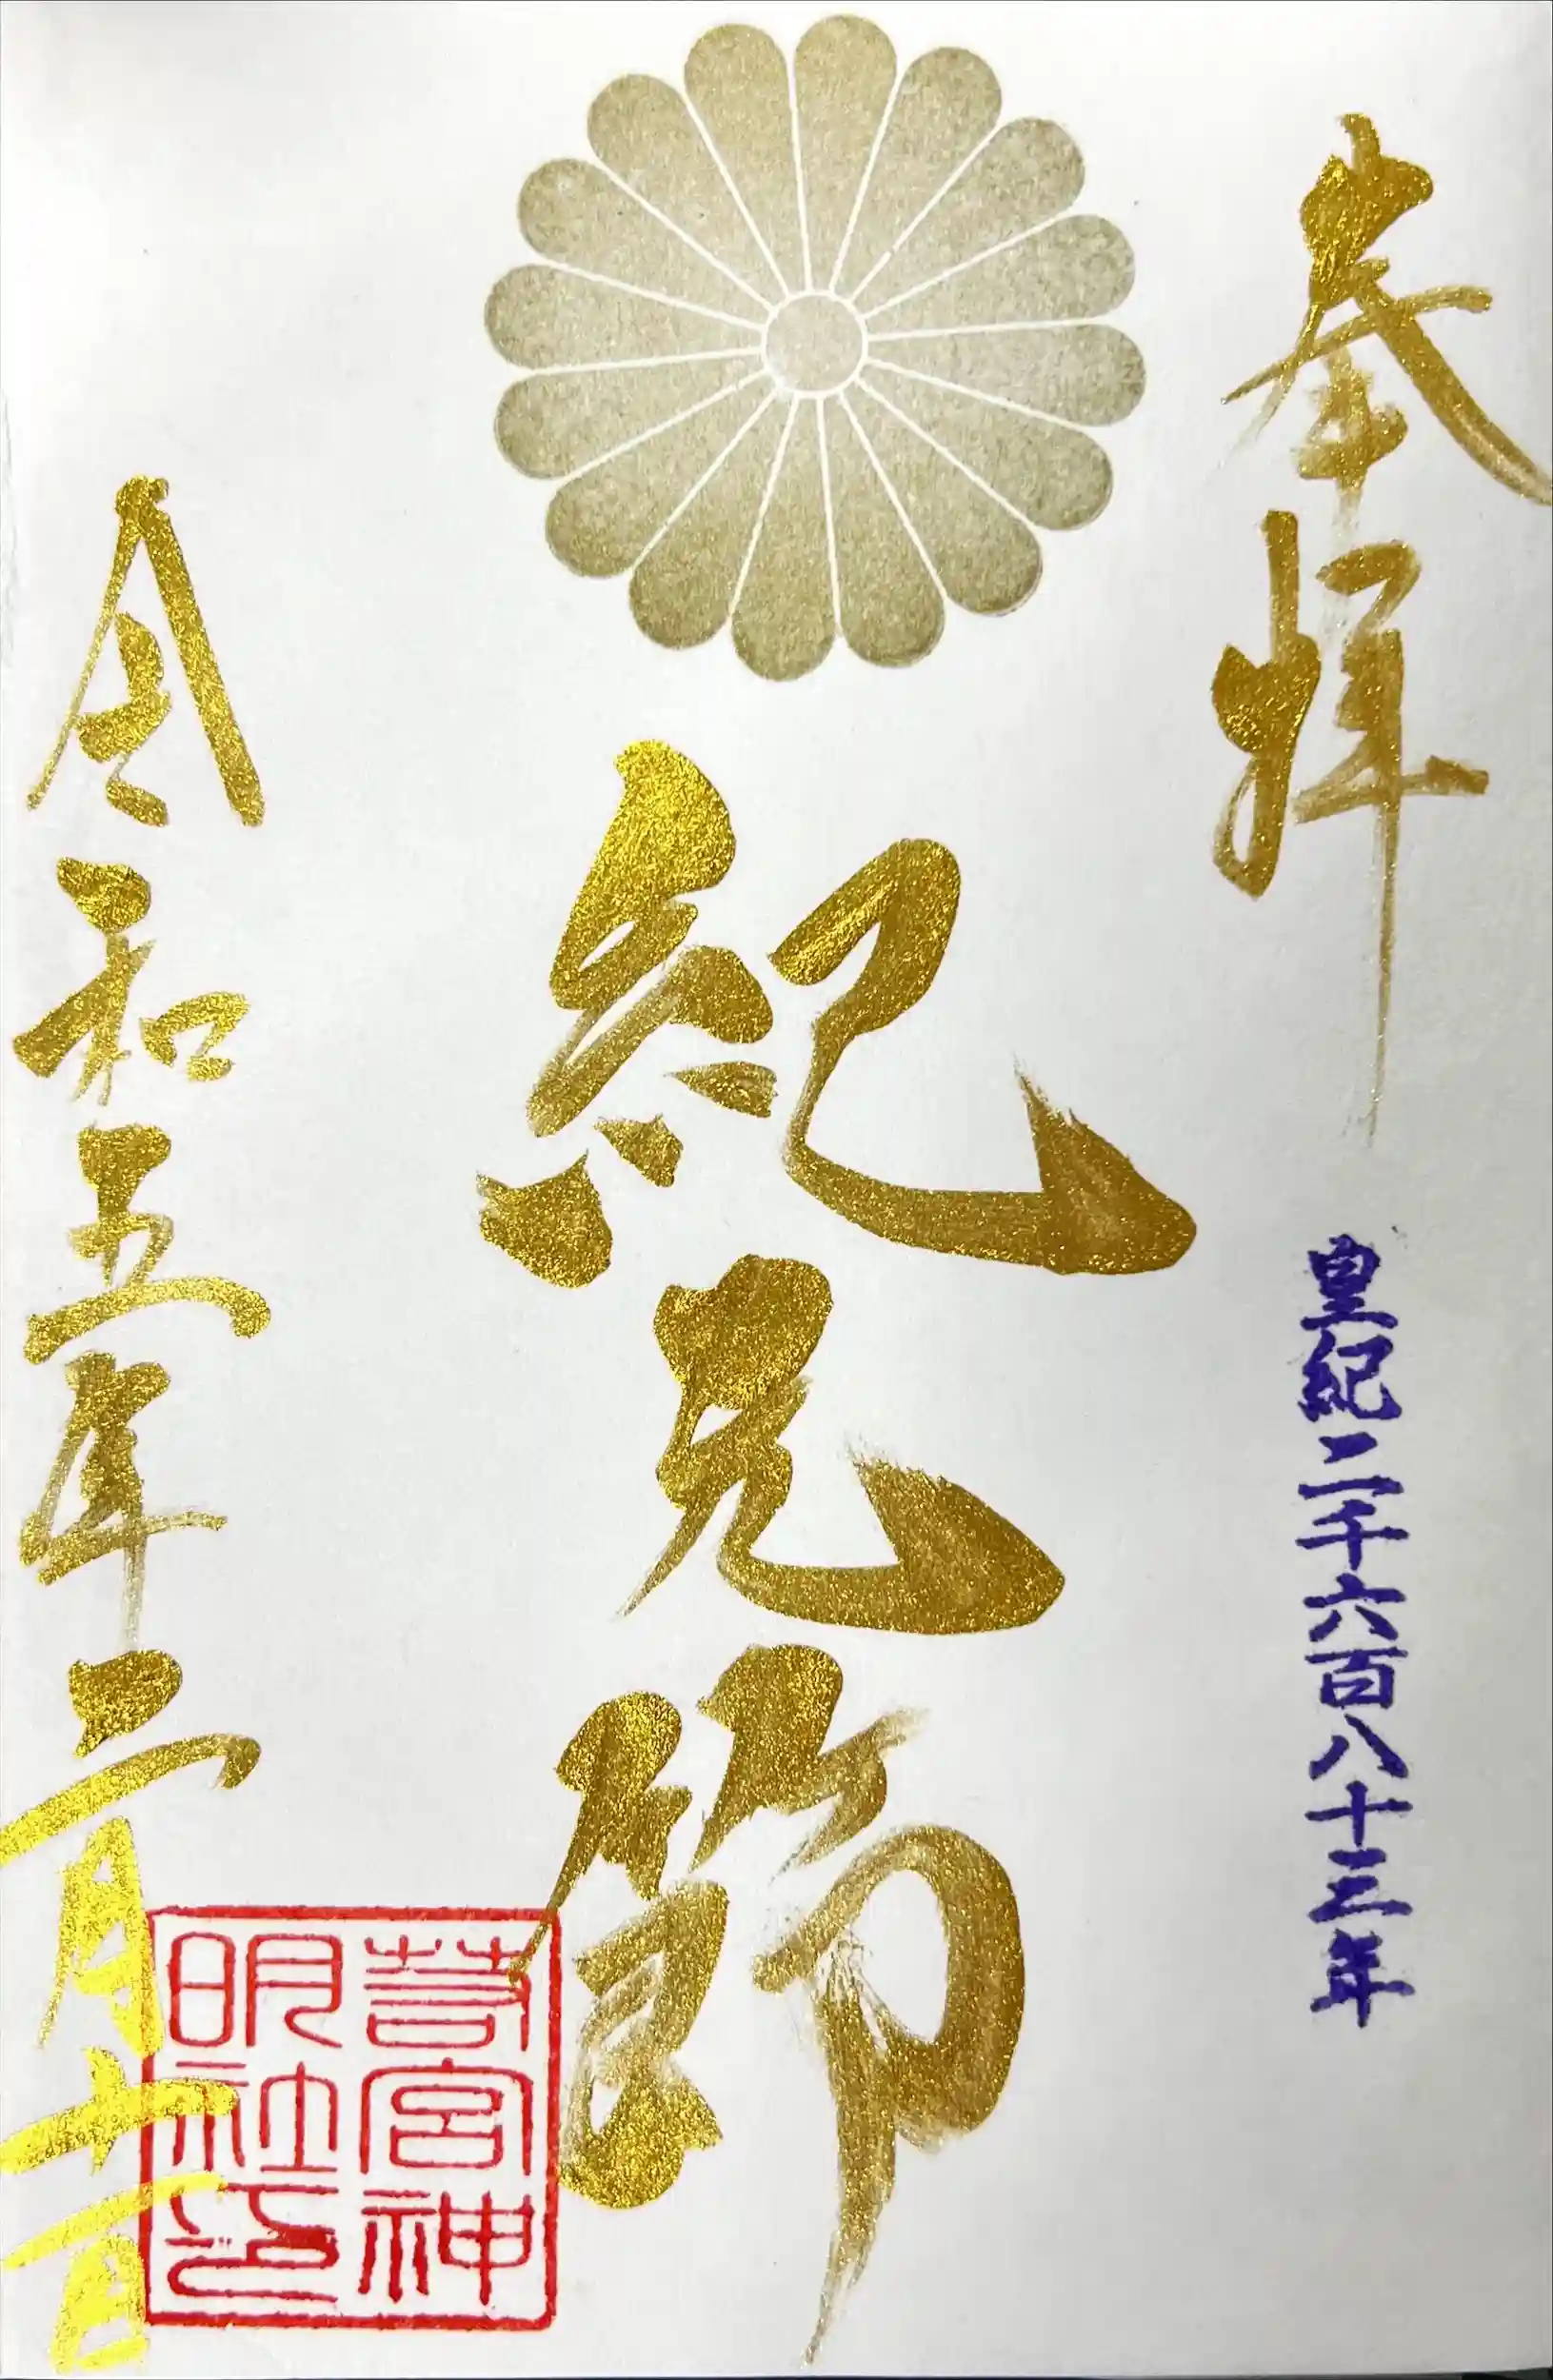 奉拝
皇紀二千六百八十三年
紀元節
令和五年二月十一日
宮神
明社印